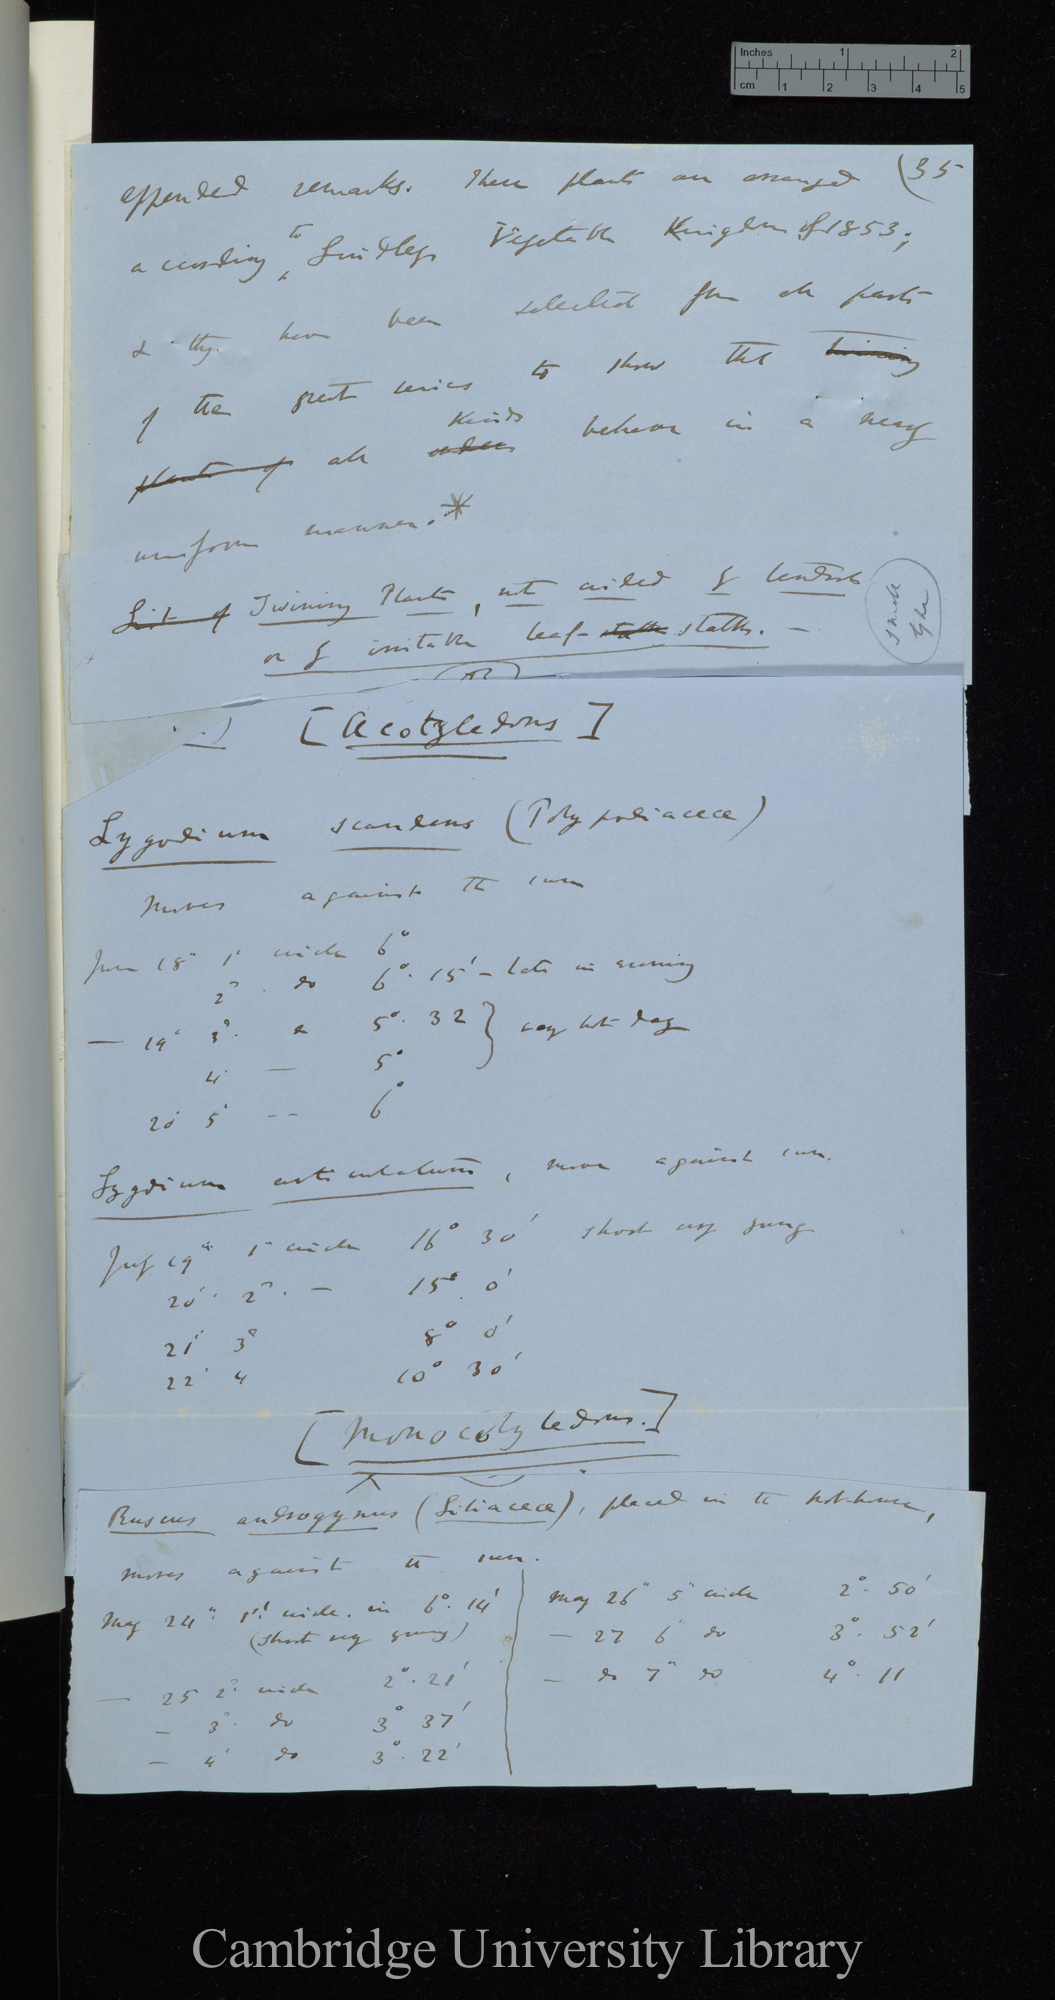 Inches 1 2
cm 1 2 3 4 5
(35
appended remarks. These plants are arranged
according to Lindley's Vegetable Kingdom of 1853;
& they have been selected from all parts
of the great series to show that twining
plants of all orders kinds behave in a nearly
uniform manner.*
List of Twining Plants, not aided by tendrils
or by irritable leaf-stalks stalks. —
small type
[Acotyledons]
Lygodium scandens (Polypodiaceæ)
Moves against the sun
June 18 1 circle 6°
2° do 6°. 15' – late in evening
— 19 3° 5°. 32 } very hot day
4 — 5°
20 5 -- 6°
Lygodium articulatum, moves against sun.
July 19th 1st circle 16° 30' shoot very young
20. 2°. — 15°. 0'
21 3° 8° 0'
22 4 10° 30'
[Monocotyledons.]
Ruscus androgynus (Liliaceæ), placed in the hot-house,
moves against the sun.
May 24th 1st circle. in 6°. 14'
(shoot very young)
— 25 2° circle 2°. 21'
— 3°. do 3° 37'
— 4 do 3°. 22'
May 26 5 circle 2°. 50'
— 27 6 do 3°. 52'
— do 7 do 4°. 11
Cambridge University Library